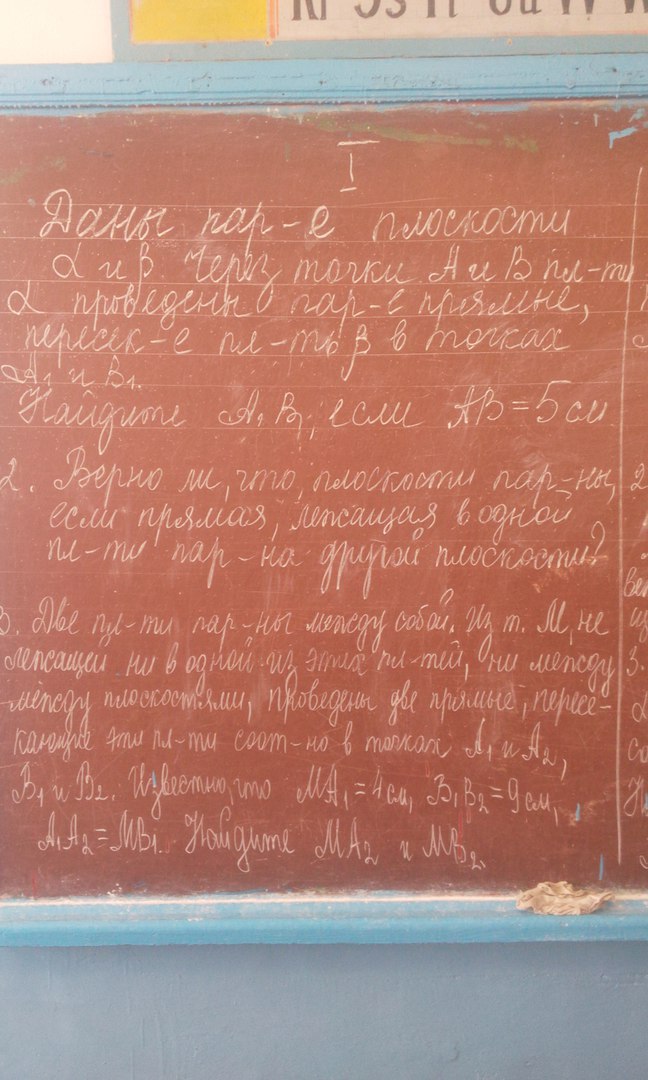 I
Даны пар-е плоскости
α и β. Через точки A и B пл-ти
α проведены пар-е прямые,
пересек-е пл-ть β в точках
A₁ и B₁.
Найдите A₁B₁, если AB = 5 см
2. Верно ли, что плоскости пар-ны,
если прямая, лежащая в одной
пл-ти пар-на другой плоскости?
3. Две пл-ти пар-ны между собой. Из т. M, не
лежащей ни в одной из этих пл-тей, ни между
между плоскостями, проведены две прямые, пересе-
кающие эти пл-ти соот-но в точках A₁ и A₂,
B₁ и B₂. Известно, что MA₁ = 4 см, B₁B₂ = 9 см,
A₁A₂ = MB₁. Найдите MA₂ и MB₂.
2
3.